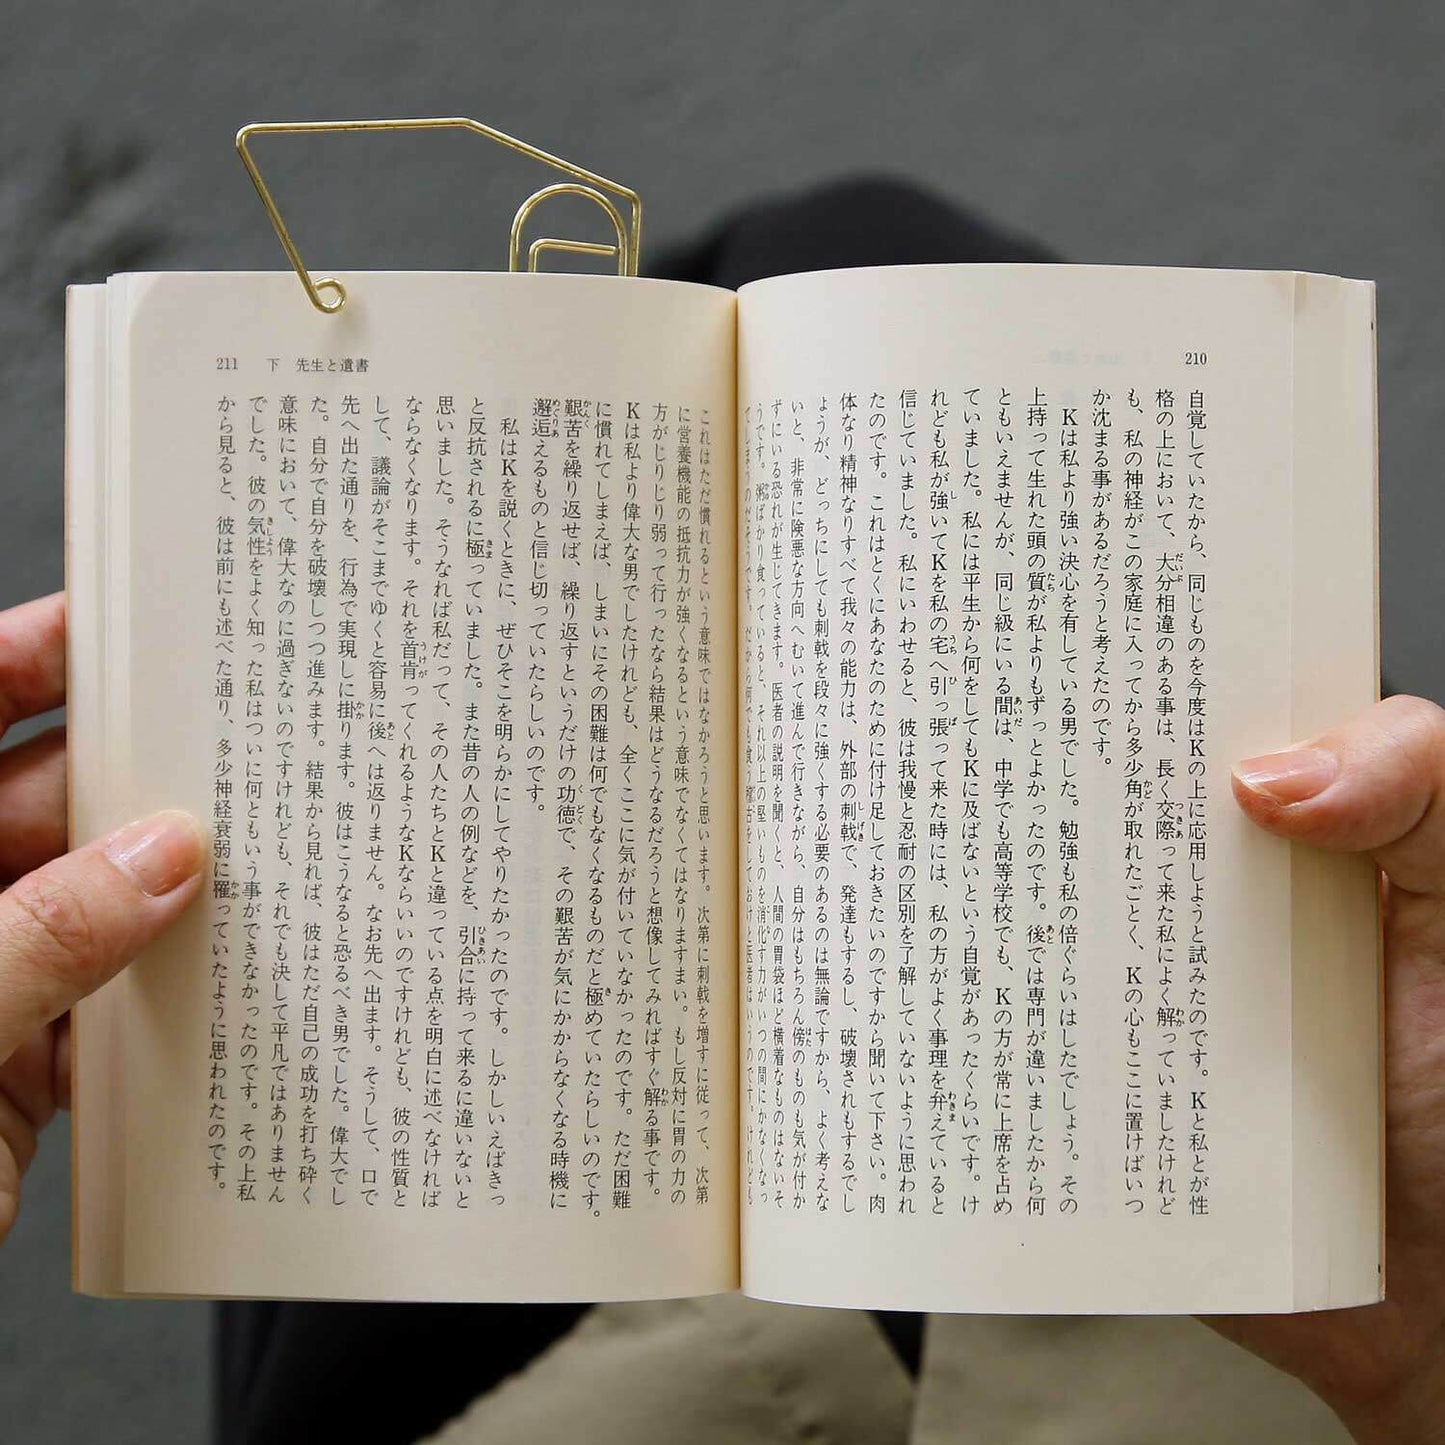 210
自覚していたから、同じものを今度はKの上に応用しようと試みたのです。Kと私とが性
格の上において、大分相違のある事は、長く交際って来た私によく解っていましたけれど
も、私の神経がこの家庭に入ってから多少角が取れたごとく、Kの心もここに置けばいつ
か沈まる事があるだろうと考えたのです。
Kは私より強い決心を有している男でした。勉強も私の倍ぐらいはしたでしょう。その
上持って生れた頭の質が私よりもずっとよかったのです。後では専門が違いましたから何
ともいえませんが、同じ級にいる間は、中学でも高等学校でも、Kの方が常に上席を占め
ていました。私には平生から何をしてもKに及ばないという自覚があったくらいです。け
れども私が強いてKを私の宅へ引っ張って来た時には、私の方がよく事理を弁えていると
信じていました。私にいわせると、彼は我慢と忍耐の区別を了解していないように思われ
たのです。これはとくにあなたのために付け足しておきたいのですから聞いて下さい。肉
体なり精神なりすべて我々の能力は、外部の刺戟で、発達もするし、破壊されもするでし
ょうが、どっちにしても刺戟を段々に強くする必要のあるのは無論ですから、よく考えな
いと、非常に険悪な方向へむいて進んで行きながら、自分はもちろん傍のものも気が付か
ずにいる恐れが生じてきます。医者の説明を聞くと、人間の胃袋ほど横着なものはないそ
うです。粥ばかり食っていると、それ以上の堅いものを消化す力がいつの間にかなくなっ
てしまうのだそうです。だから何でも食う稽古をしておけと医者はいうのです。けれども
211 下 先生と遺書
これはただ慣れるという意味ではなかろうと思います。次第に刺戟を増すに従って、次第
に営養機能の抵抗力が強くなるという意味でなくてはなりますまい。もし反対に胃の力の
方がじりじり弱って行ったなら結果はどうなるだろうと想像してみればすぐ解る事です。
Kは私より偉大な男でしたけれども、全くここに気が付いていなかったのです。ただ困難
に慣れてしまえば、しまいにその困難は何でもなくなるものだと極めていたらしいのです。
艱苦を繰り返せば、繰り返すというだけの功徳で、その艱苦が気にかからなくなる時機に
邂逅えるものと信じ切っていたらしいのです。
私はKを説くときに、ぜひそこを明らかにしてやりたかったのです。しかしいえばきっ
と反抗されるに極っていました。また昔の人の例などを、引合に持って来るに違いないと
思いました。そうなれば私だって、その人たちとKと違っている点を明白に述べなければ
ならなくなります。それを首肯ってくれるようなKならいいのですけれども、彼の性質と
して、議論がそこまでゆくと容易に後へは返りません。なお先へ出ます。そうして、口で
先へ出た通りを、行為で実現しに掛ります。彼はこうなると恐るべき男でした。偉大でし
た。自分で自分を破壊しつつ進みます。結果から見れば、彼はただ自己の成功を打ち砕く
意味において、偉大なのに過ぎないのですけれども、それでも決して平凡ではありません
でした。彼の気性をよく知った私はついに何ともいう事ができなかったのです。その上私
から見ると、彼は前にも述べた通り、多少神経衰弱に罹っていたように思われたのです。